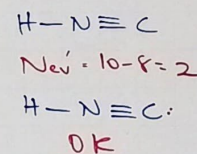 H — N ≡ C
Nev́ = 10-8=2
H — N ≡ C:
OK